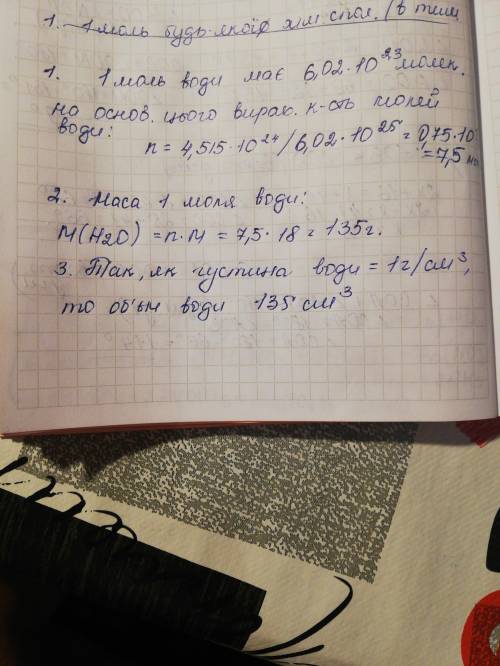 1. 1 моль будь-якої хім. спол. (в тому
1. 1 моль води має 6,02·10²³ молек.
на основ. цього вирах. к-сть молей
води:
n = 4,515·10²⁴/6,02·10²⁵ = 0,75·10
= 7,5
2. Маса 1 моля води:
M(H2O) = n·M = 7,5·18 = 135г.
3. Так, як густина води = 1г/см³,
то об'єм води 135 см³